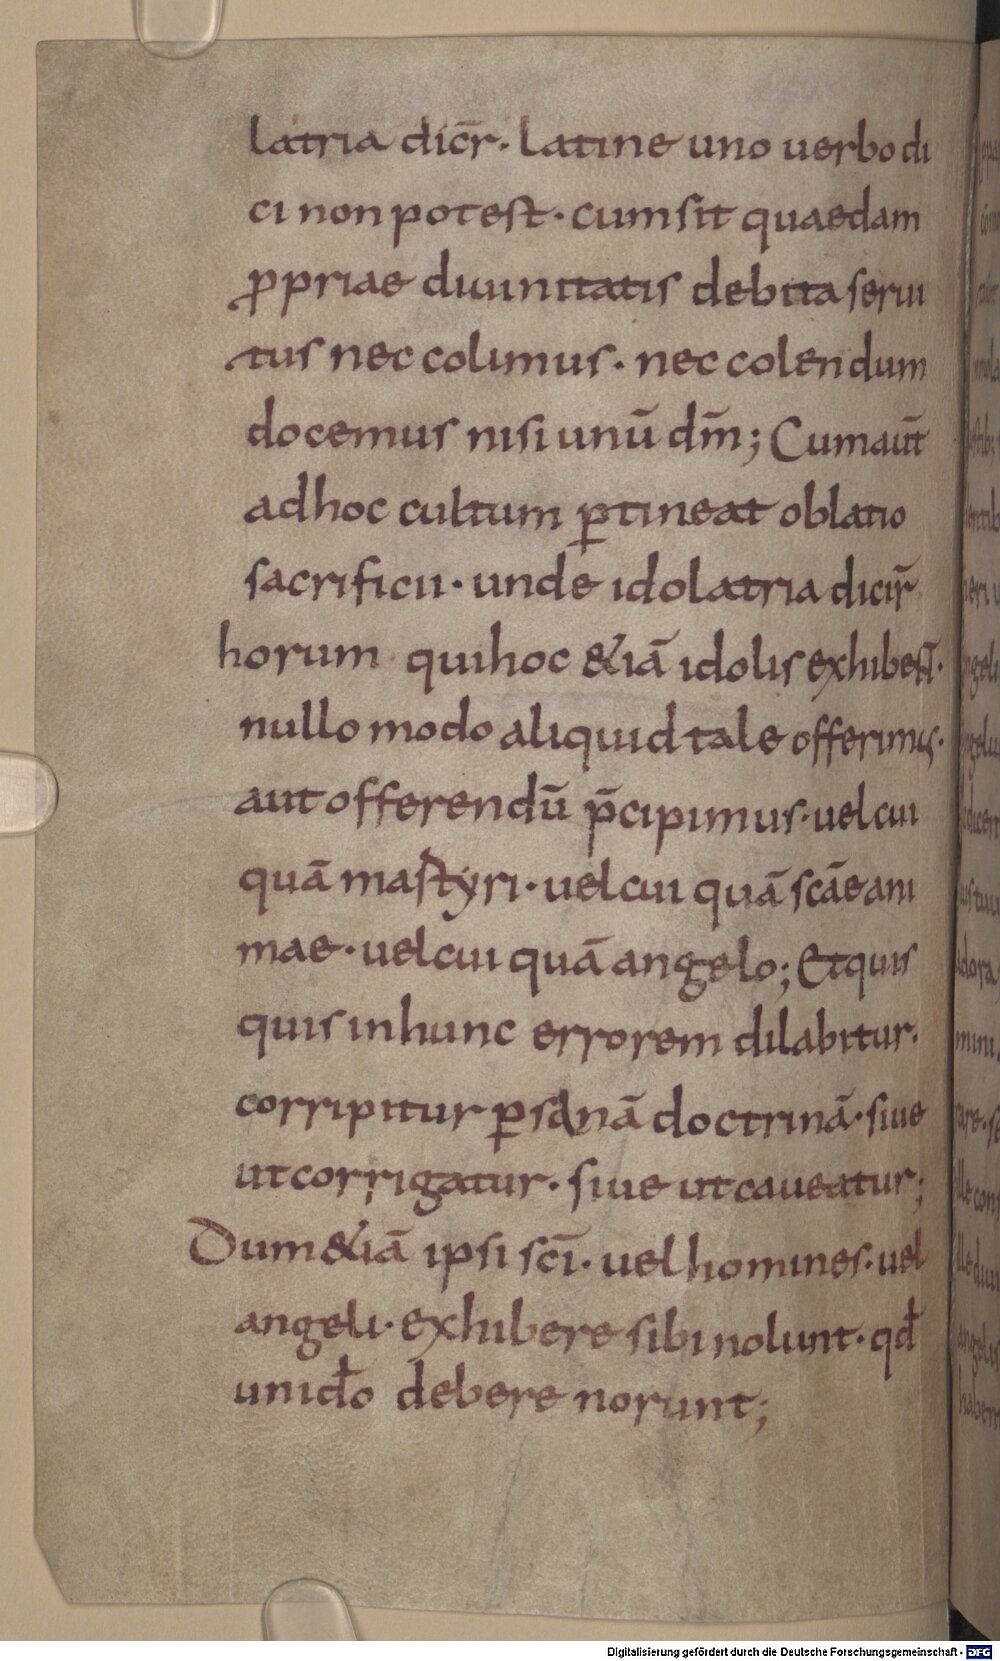 latria dicr̄. Latine uno uerbo di
ci non potest. cum sit quaedam
ꝓpriae diuinitatis debita serui
tus nec colimus. nec colendum
docemus nisi unū dm̄; Cum aut̄
ad hoc cultum ꝑtineat oblatio
sacrificii. unde idolatria dicit̄r
horum qui hoc &iā idolis exhibest̄.
nullo modo aliquid tale offerimus.
aut offerendū p̄cipimus. uel cui
quā mastyri. uel cui quā scāe ani
mae. uel cui quā angelo; Et quis
quis in hunc errorem dilabitur.
corripitur ꝑ sanā doctrinā. siue
ut corrigatur. siue ut caueatur;
Dum &iā ipsi scī. uel homines. uel
angeli. exhibere sibi nolunt. qđ
uni đo debere norunt;
Digitalisierung gefördert durch die Deutsche Forschungsgemeinschaft - DFG